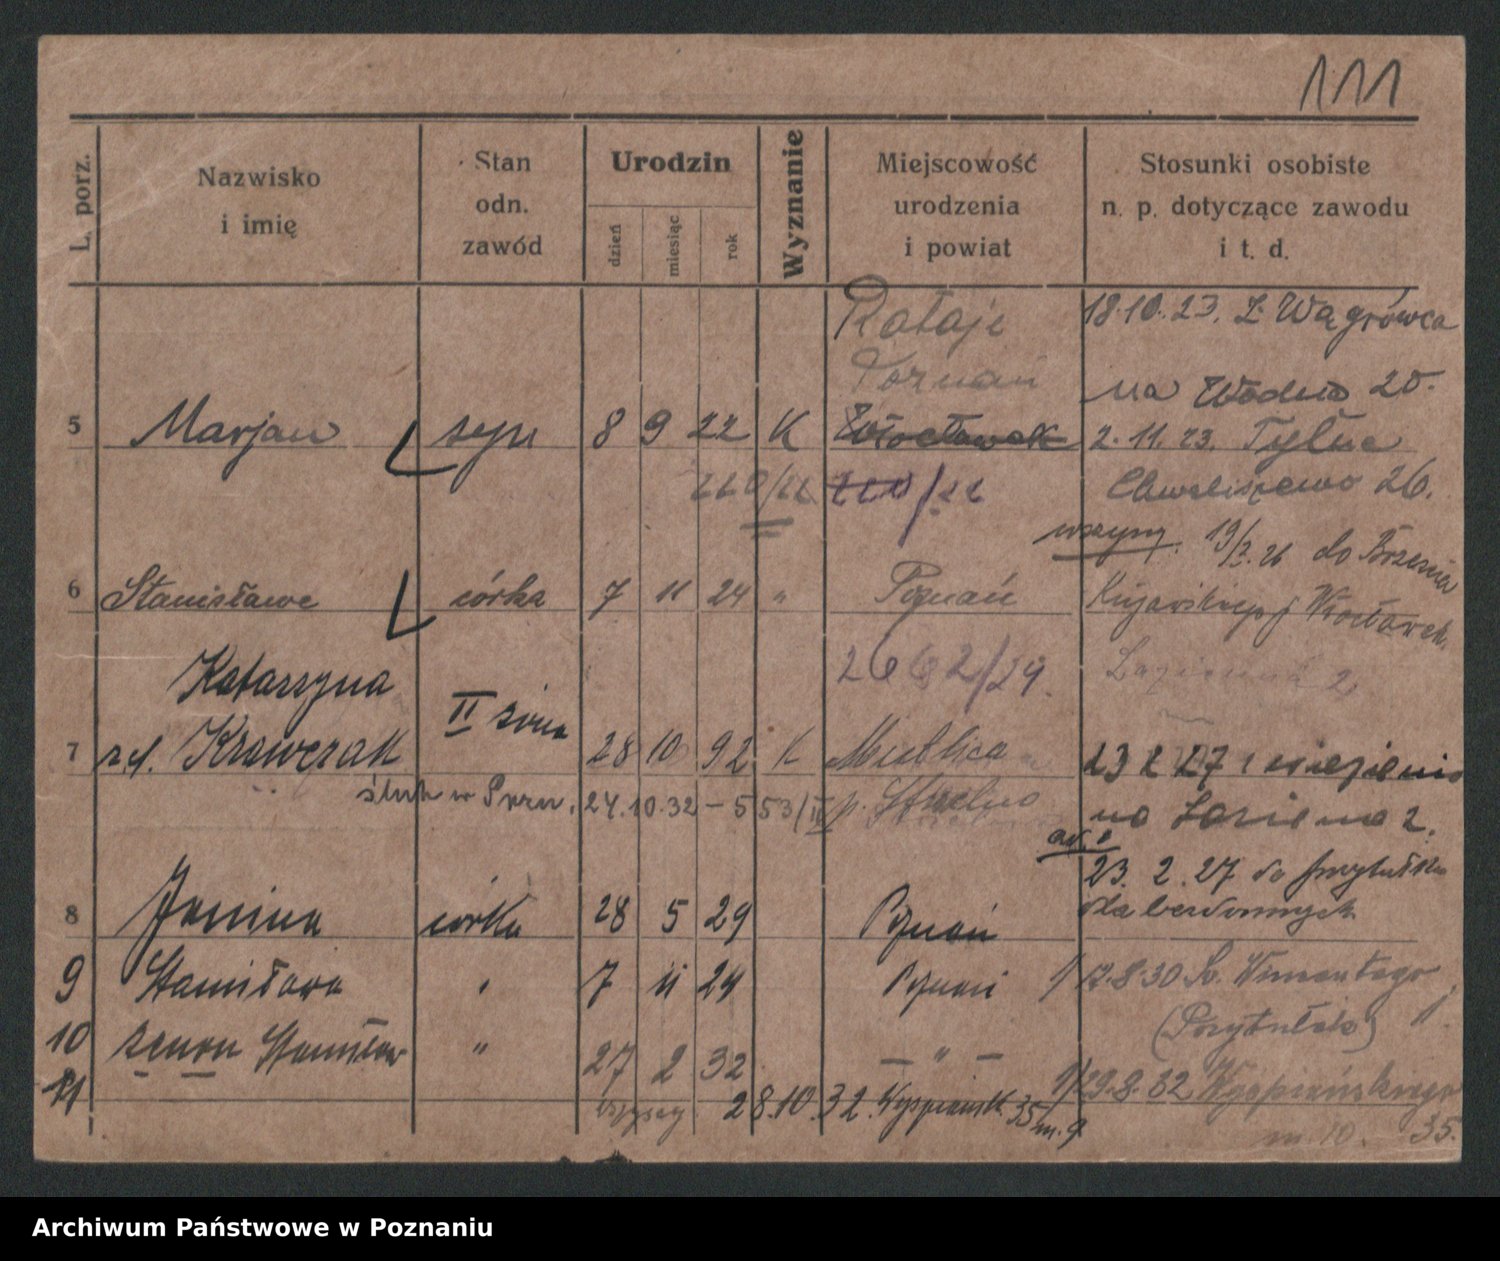 111
L. porz.
Nazwisko
i imię
Stan
odn.
zawód
Urodzin
dzień
miesiąc
rok
Wyznanie
Miejscowość
urodzenia
i powiat
Stosunki osobiste
n. p. dotyczące zawodu
i t. d.
Rataje
Poznań
5 Marjan syn 8 9 22 K Włocławek
6 Stanisława córka 7 11 24 " Poznań
2662/24.
Katarzyna
II żona
7 z d. Krawczak 28 10 92 K
ślub w Pozn. 24.10.32 – 553/II p. Strzelno
8 Janina córka 28 5 29 Poznań
9 Stanisława " 7 11 24 Poznań
10 Zenon Stanisław " 27 2 32 – " –
11
wszyscy 28.10.32. Wyspiańsk. 35 m. 9
18.10.23. z Wągrówca
na Wodna 20.
2.11.23. Tylne
Chwaliszewo 26.
wszyscy 19/2.26 do Brześcia
Kujawskiego Włocławek
Łazienna 2
23 2 27 z więzienia
na Łazienna 2.
ad. 1
23. 2. 27 do przytułku
dla bezdomnych
1/ 12.8.30 Św. Wincentego
(Przytułek) 1.
1/ 29.8.32 Wyspiańskiego
m. 10. 35.
Archiwum Państwowe w Poznaniu